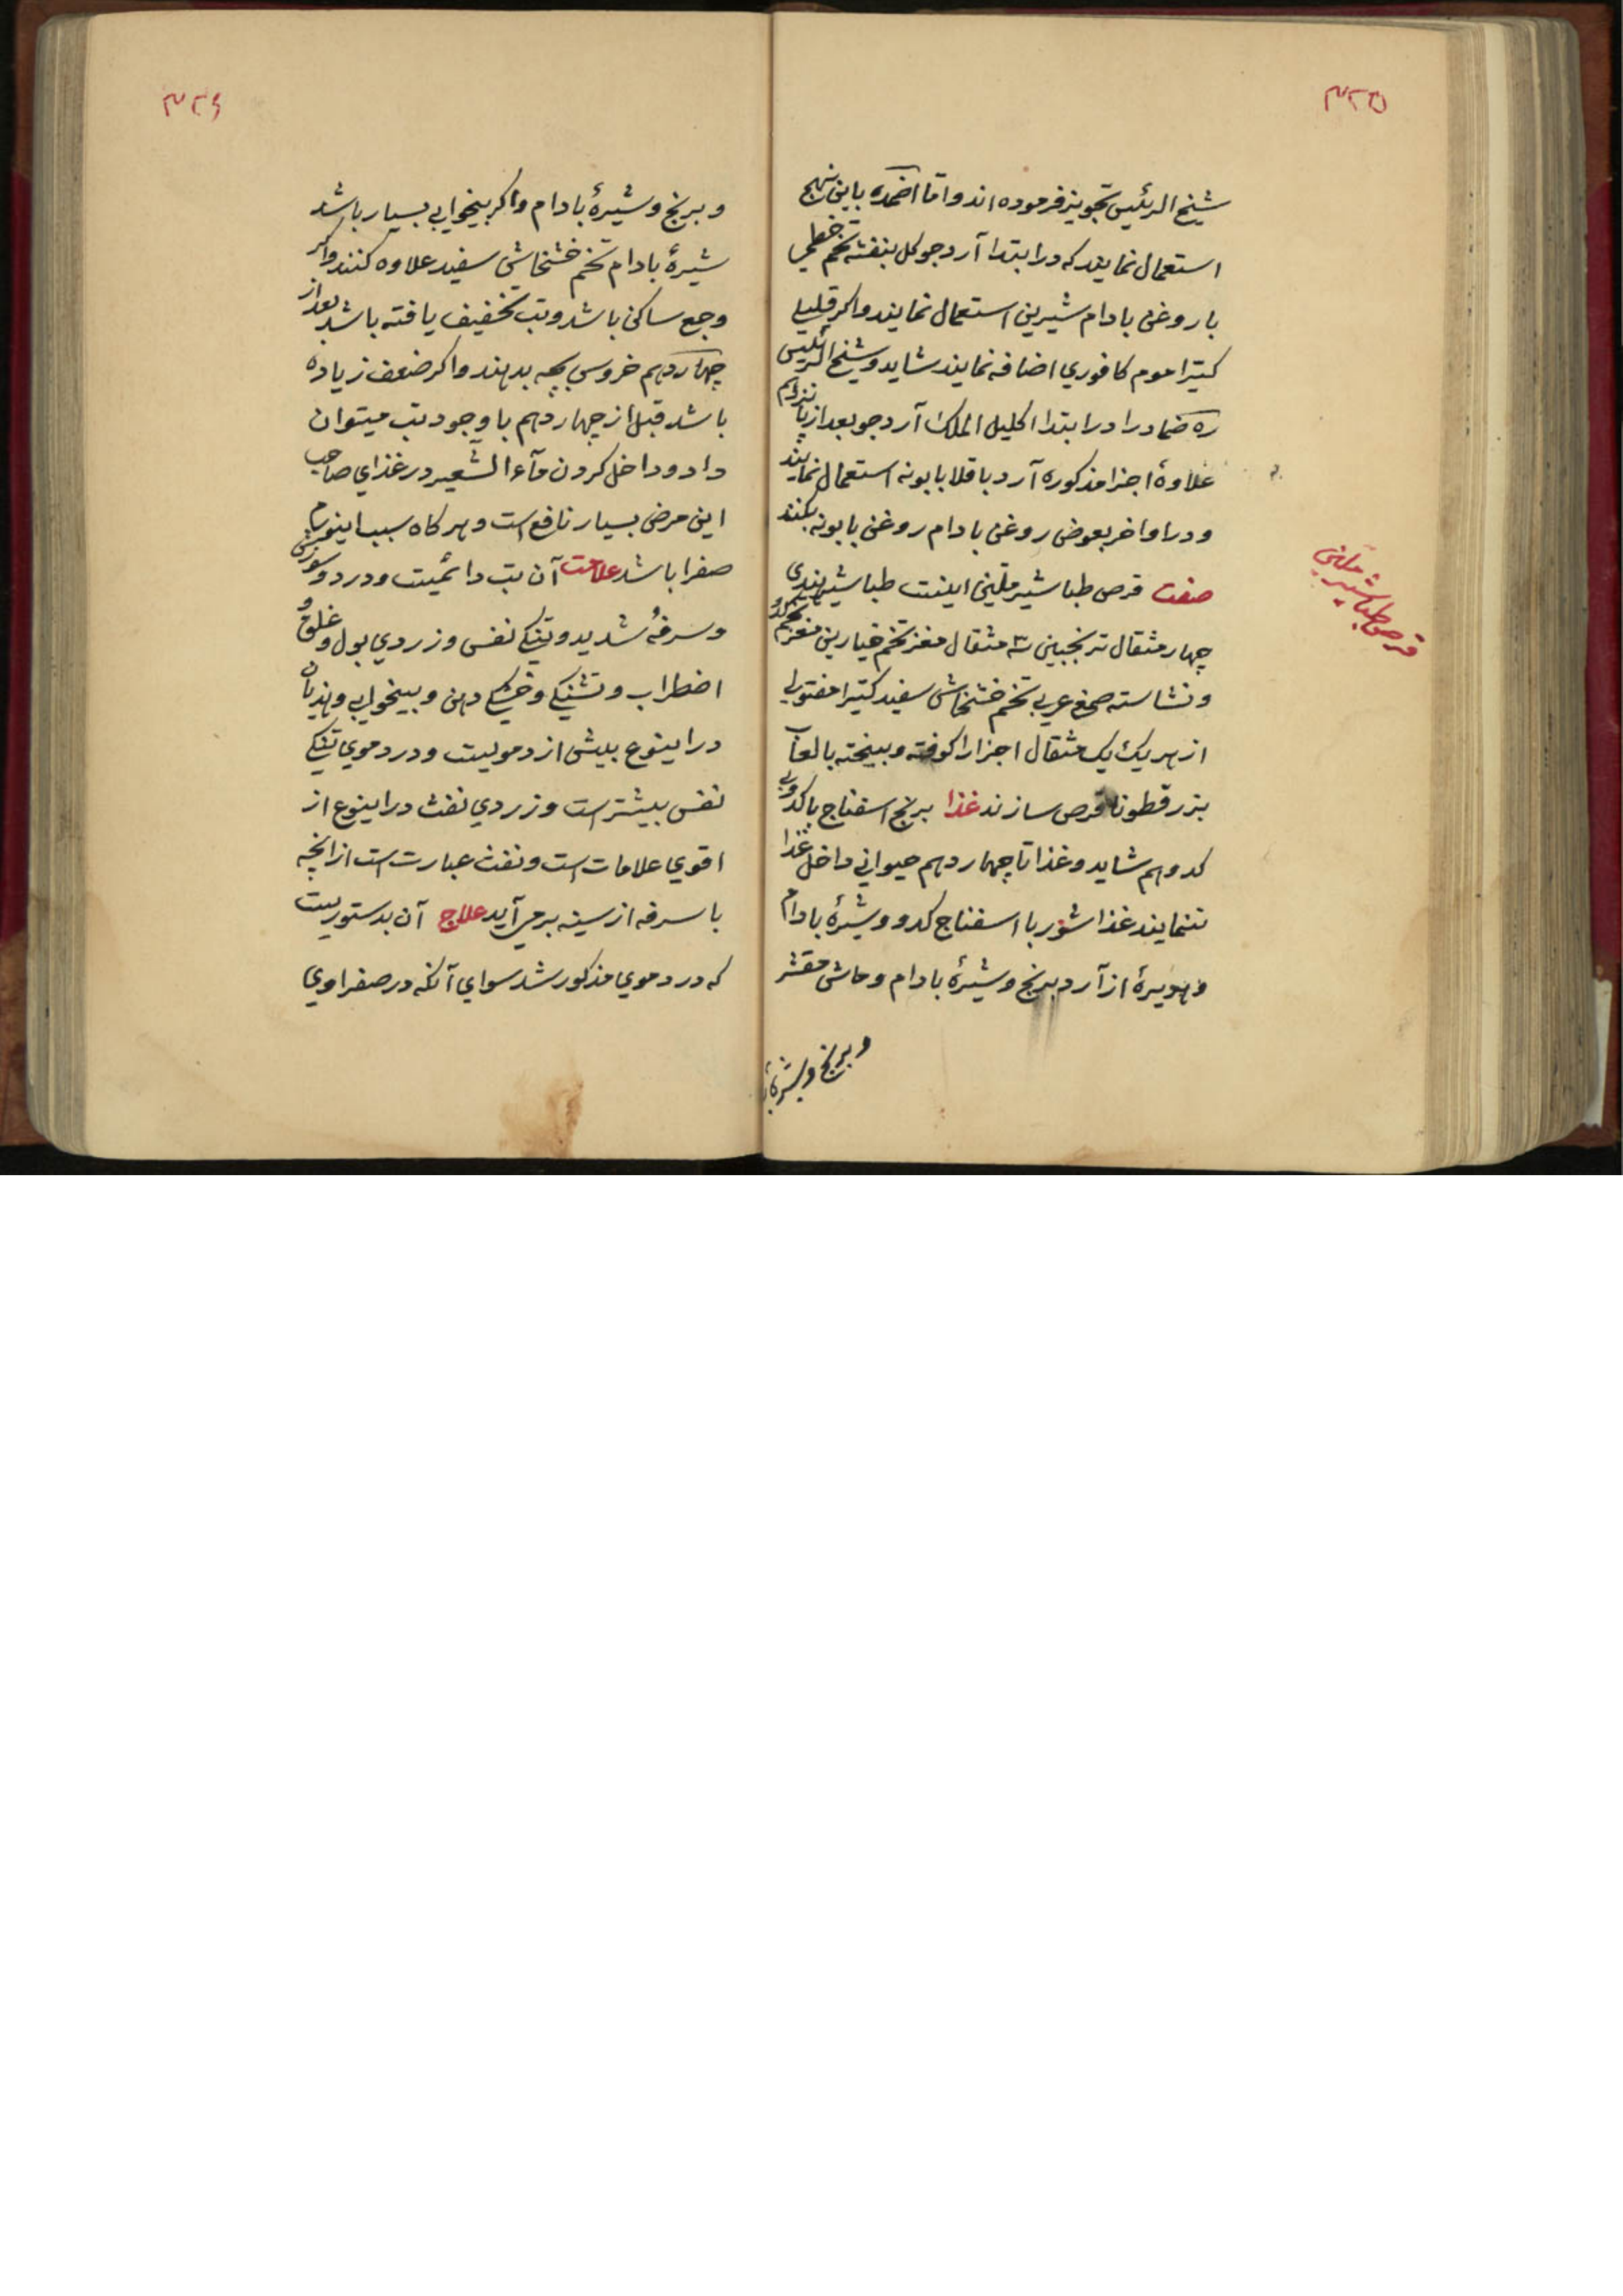 ۳۲۵
شیخ الرئیس تجویز فرموده اند و اما اضمده باین نهج
استعمال نمایند که در ابتدا آرد جو کل بنفشه تخم خطمي
با روغن بادام شیرین استعمال نمایند و اکر قلیلي
کتیرا موم کافوري اضافه نمایند شاید و شیخ الرئیس
ره ضماد را در ابتدا اکلیل الملك آرد جو بعد از پانزدهم
علاوهٔ اجزا مذکوره آرد باقلا بابونه استعمال نمایند
و در اواخر بعوض روغن بادام روغن بابونه بکنند
صفت قرص طباشیر ملین اینست طباشیر هندي
قرص طباشیر ملین
چهار مثقال ترنجبین سه مثقال مغز تخم خیارین مغز تخم کدو
و نشاسته صمغ عربي تخم خشخاش سفید کتیرا مفتولي
از هر یك یك مثقال اجزا را کوفته و بیخته با لعاب
بزر قطونا قرص سازند غذا برنج اسفناج با کدو بي
کدو هم شاید و غذا تا چهاردهم حیواني داخل غذا
ننمایند غذا شوربا اسفناج کدو و شیرهٔ بادام
و هریرهٔ از آرد برنج و شیرهٔ بادام و ماش مقشر
و برنج و شیرهٔ با
۳۲۶
و برنج و شیرهٔ بادام و اکر بیخوابي بسیار باشد
شیرهٔ بادام تخم خشخاش سفید علاوه کنند و اکر
وجع ساکن باشد و تب تخفیف یافته باشد بعد از
چهاردهم خروس بچه بدهند و اکر ضعف زیاده
باشد قبل از چهاردهم با وجود تب میتوان
داد و داخل کردن مآء الشعیر در غذاي صاحب
این مرض بسیار نافع است و هر کاه سبب اینورم
صفرا باشد علامت آن تب دائمیت و درد و سوزش
و سرفهٔ شدید و تنکي نفس و زردي بول و غلق و
اضطراب و تشنکي و خشکي دهن و بیخوابي و هذیان
در اینوع بیش از دمویست و در دموي تنکي
نفس بیشتر است و زردي نفث در اینوع از
اقوي علامات است و نفث عبارت است از انچه
با سرفه از سینه بر مي آید علاج آن بدستوریست
که در دموي مذکور شد سواي آنکه در صفراوي